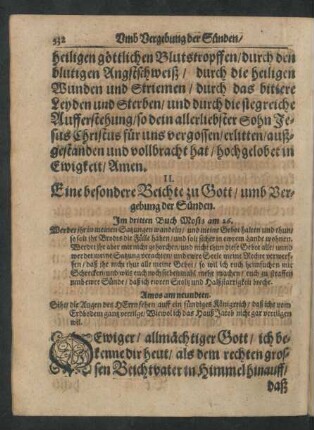 532 Umb Vergebung der Sünden/
heiligen göttlichen Blutstropffen/durch den
blutigen Angstschweiß/ durch die heiligen
Wunden und Striemen/ durch das bittere
Leyden und Sterben/ und durch die siegreiche
Aufferstehung/so dein allerliebster Sohn Je-
sus Christus für uns vergossen/erlitten/auß-
gestanden und vollbracht hat/hochgelobet in
Ewigkeit/Amen.
II.
Eine besondere Beichte zu Gott/ umb Ver-
gebung der Sünden.
Im dritten Buch Mosis am 26.
Werdet ihr in meinen Satzungen wandeln/ und meine Gebot halten und thun/
so solt ihr Brodes die Fülle haben/ und solt sicher in eurem Lande wohnen.
Werdet ihr aber mir nicht gehorchen/ und nicht thun diese Gebot alle/ und
werdet meine Satzung verachten/ und eure Seele meine Rechte verwerf-
fen/ daß ihr nicht thut alle meine Gebot/ so will ich euch heimsuchen mit
Schrecken/ und wils euch noch siebenmahl mehr machen/ euch zu straffen
umb eure Sünde/ daß ich euren Stoltz und Halsstarrigkeit breche.
Amos am neundten.
Sihe/ die Augen des HErrn sehen auff ein sündiges Königreich/ daß ichs vom
Erdboden gantz vertilge/ Wiewol ich das Hauß Jacob nicht gar vertilgen
will.
O Ewiger/ allmächtiger Gott/ ich be-
kenne dir heut/ als dem rechten gros-
sen Beichtvater in Himmel hinauff/
daß